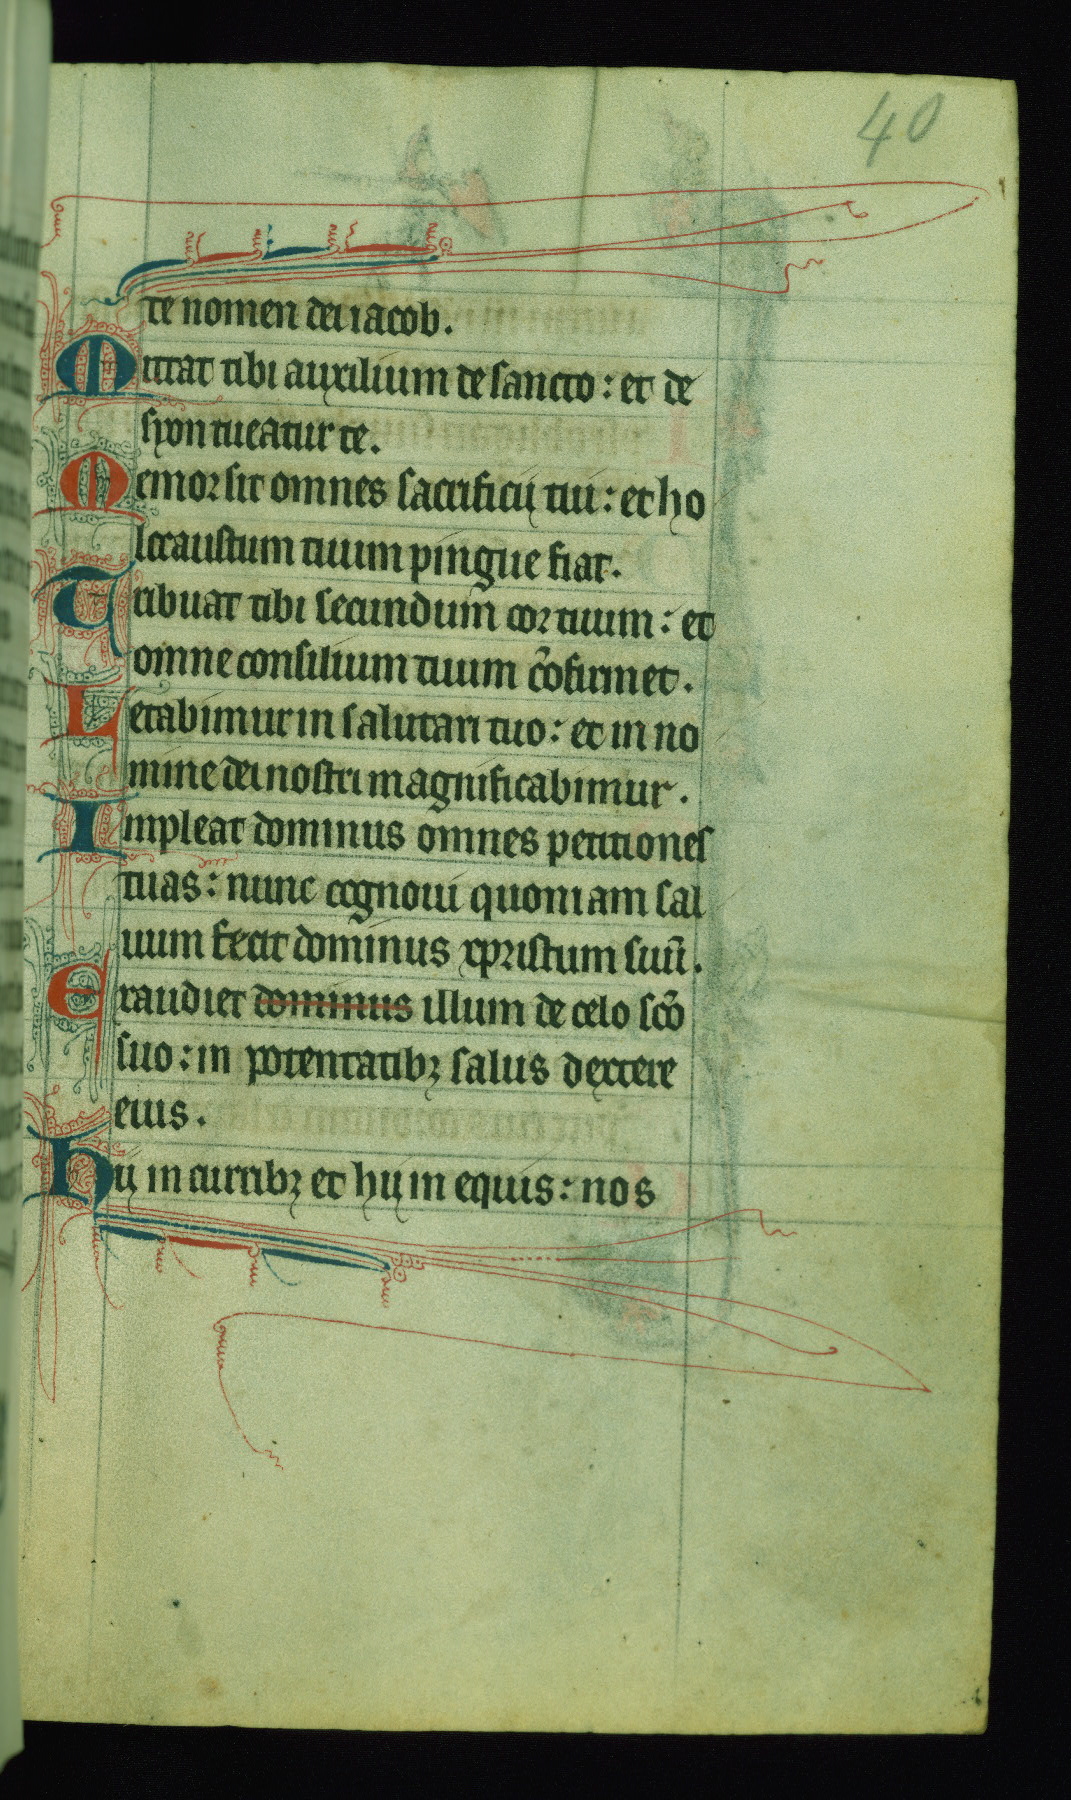 40
te nomen dei iacob.
Mittat tibi auxilium de sancto: et de
syon tueatur te.
Memor sit omnes sacrificij tui: et ho
locaustum tuum pingue fiat.
Tribuat tibi secundum cor tuum: et
omne consilium tuum c̃ofirmet.
Letabimur in salutari tuo: et in no
mine dei nostri magnificabimur.
Impleat dominus omnes petitiones
tuas: nunc cognoui quoniam sal
uum fecit dominus xpristum suũ.
Exaudiet dominus illum de celo sc̃o
suo: in potentatibꝫ salus dextere
eius.
Hij in curribꝫ et hij in equis: nos